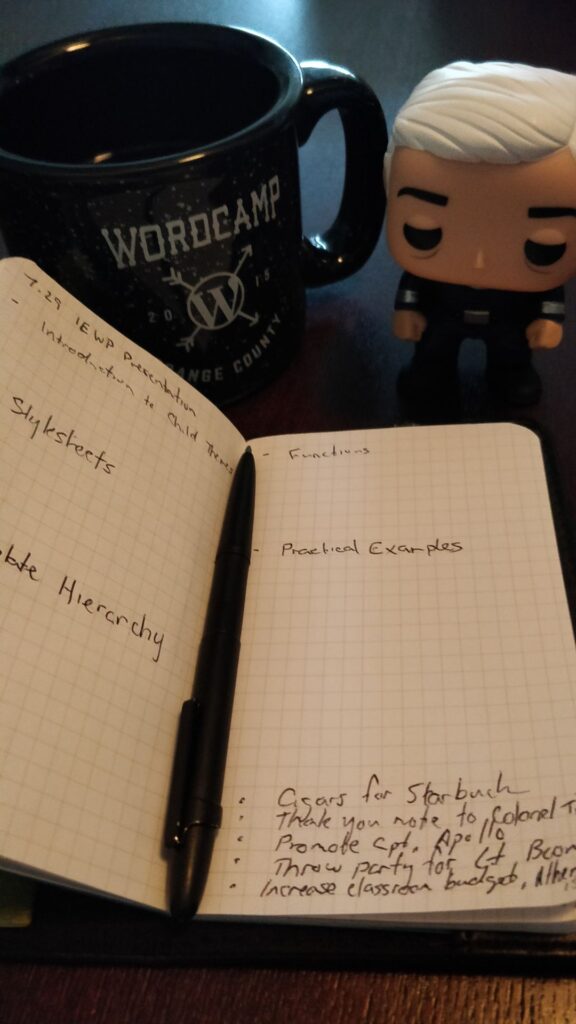 WORDCAMP
20 15
W
ORANGE COUNTY
7.29 IEWP Presentation
- Introduction to Child Themes
Stylesheets
plate Hierarchy
- Functions
- Practical Examples
• Cigars for Starbuck
• Thank you note to Colonel T
• Promote Cpt. Apollo
• Throw party for Lt Boom
• Increase classroom budget,